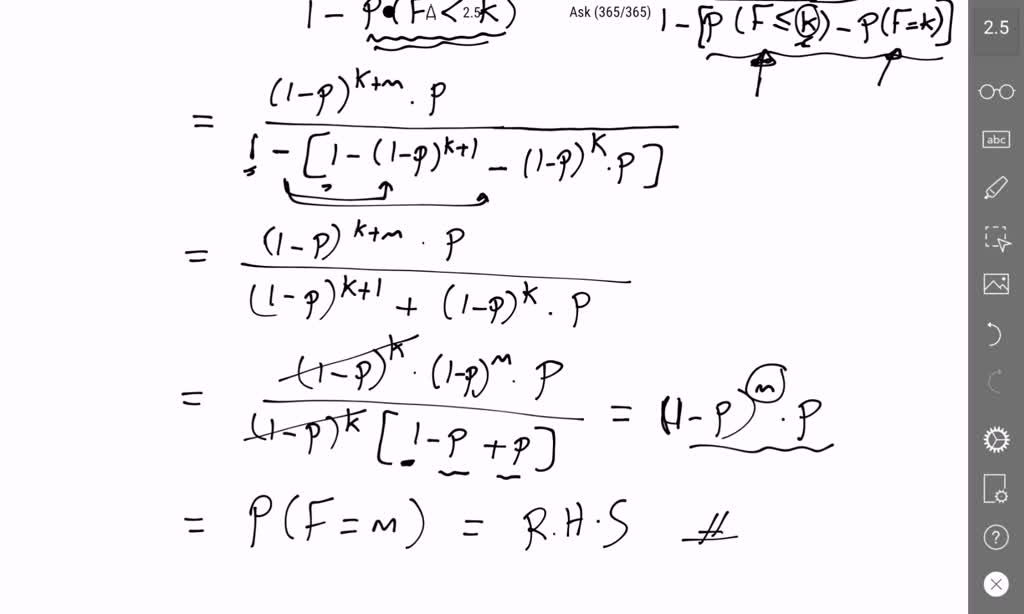 1 - P(F < k) 2.5 Ask (365/365) 1 - [P(F ≤ k) - P(F = k)] 2.5
= (1-p)^{k+m} · p / 1 - [1 - (1-p)^{k+1} - (1-p)^k · p]
abc
= (1-p)^{k+m} · p / (1-p)^{k+1} + (1-p)^k · p
= (1-p)^k · (1-p)^m · p / (1-p)^k [1-p+p] = (1-p)^m · p
= P(F = m) = R.H.S #
?